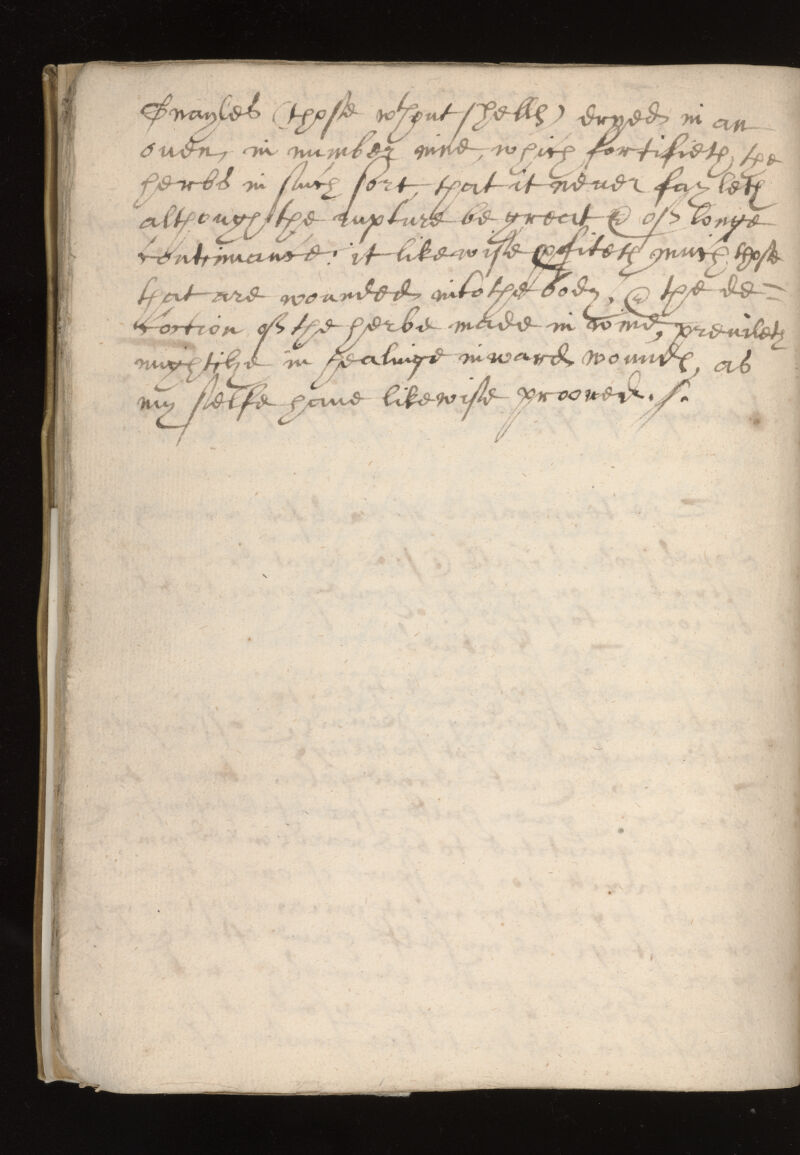 Snayles (those wthout shells) dryed in an
ouen, in number nine, which fortifieth, the
herbs in such sort, that it neuer fayleth
although the rupture be great & of longe
continuance: it likewise pfiteth much those
that are wounded into the body, & the de=
coction of the herbe made in wine, previleth
mightilye in healinge inward wounds, as
my selfe haue likewise prooued. /.